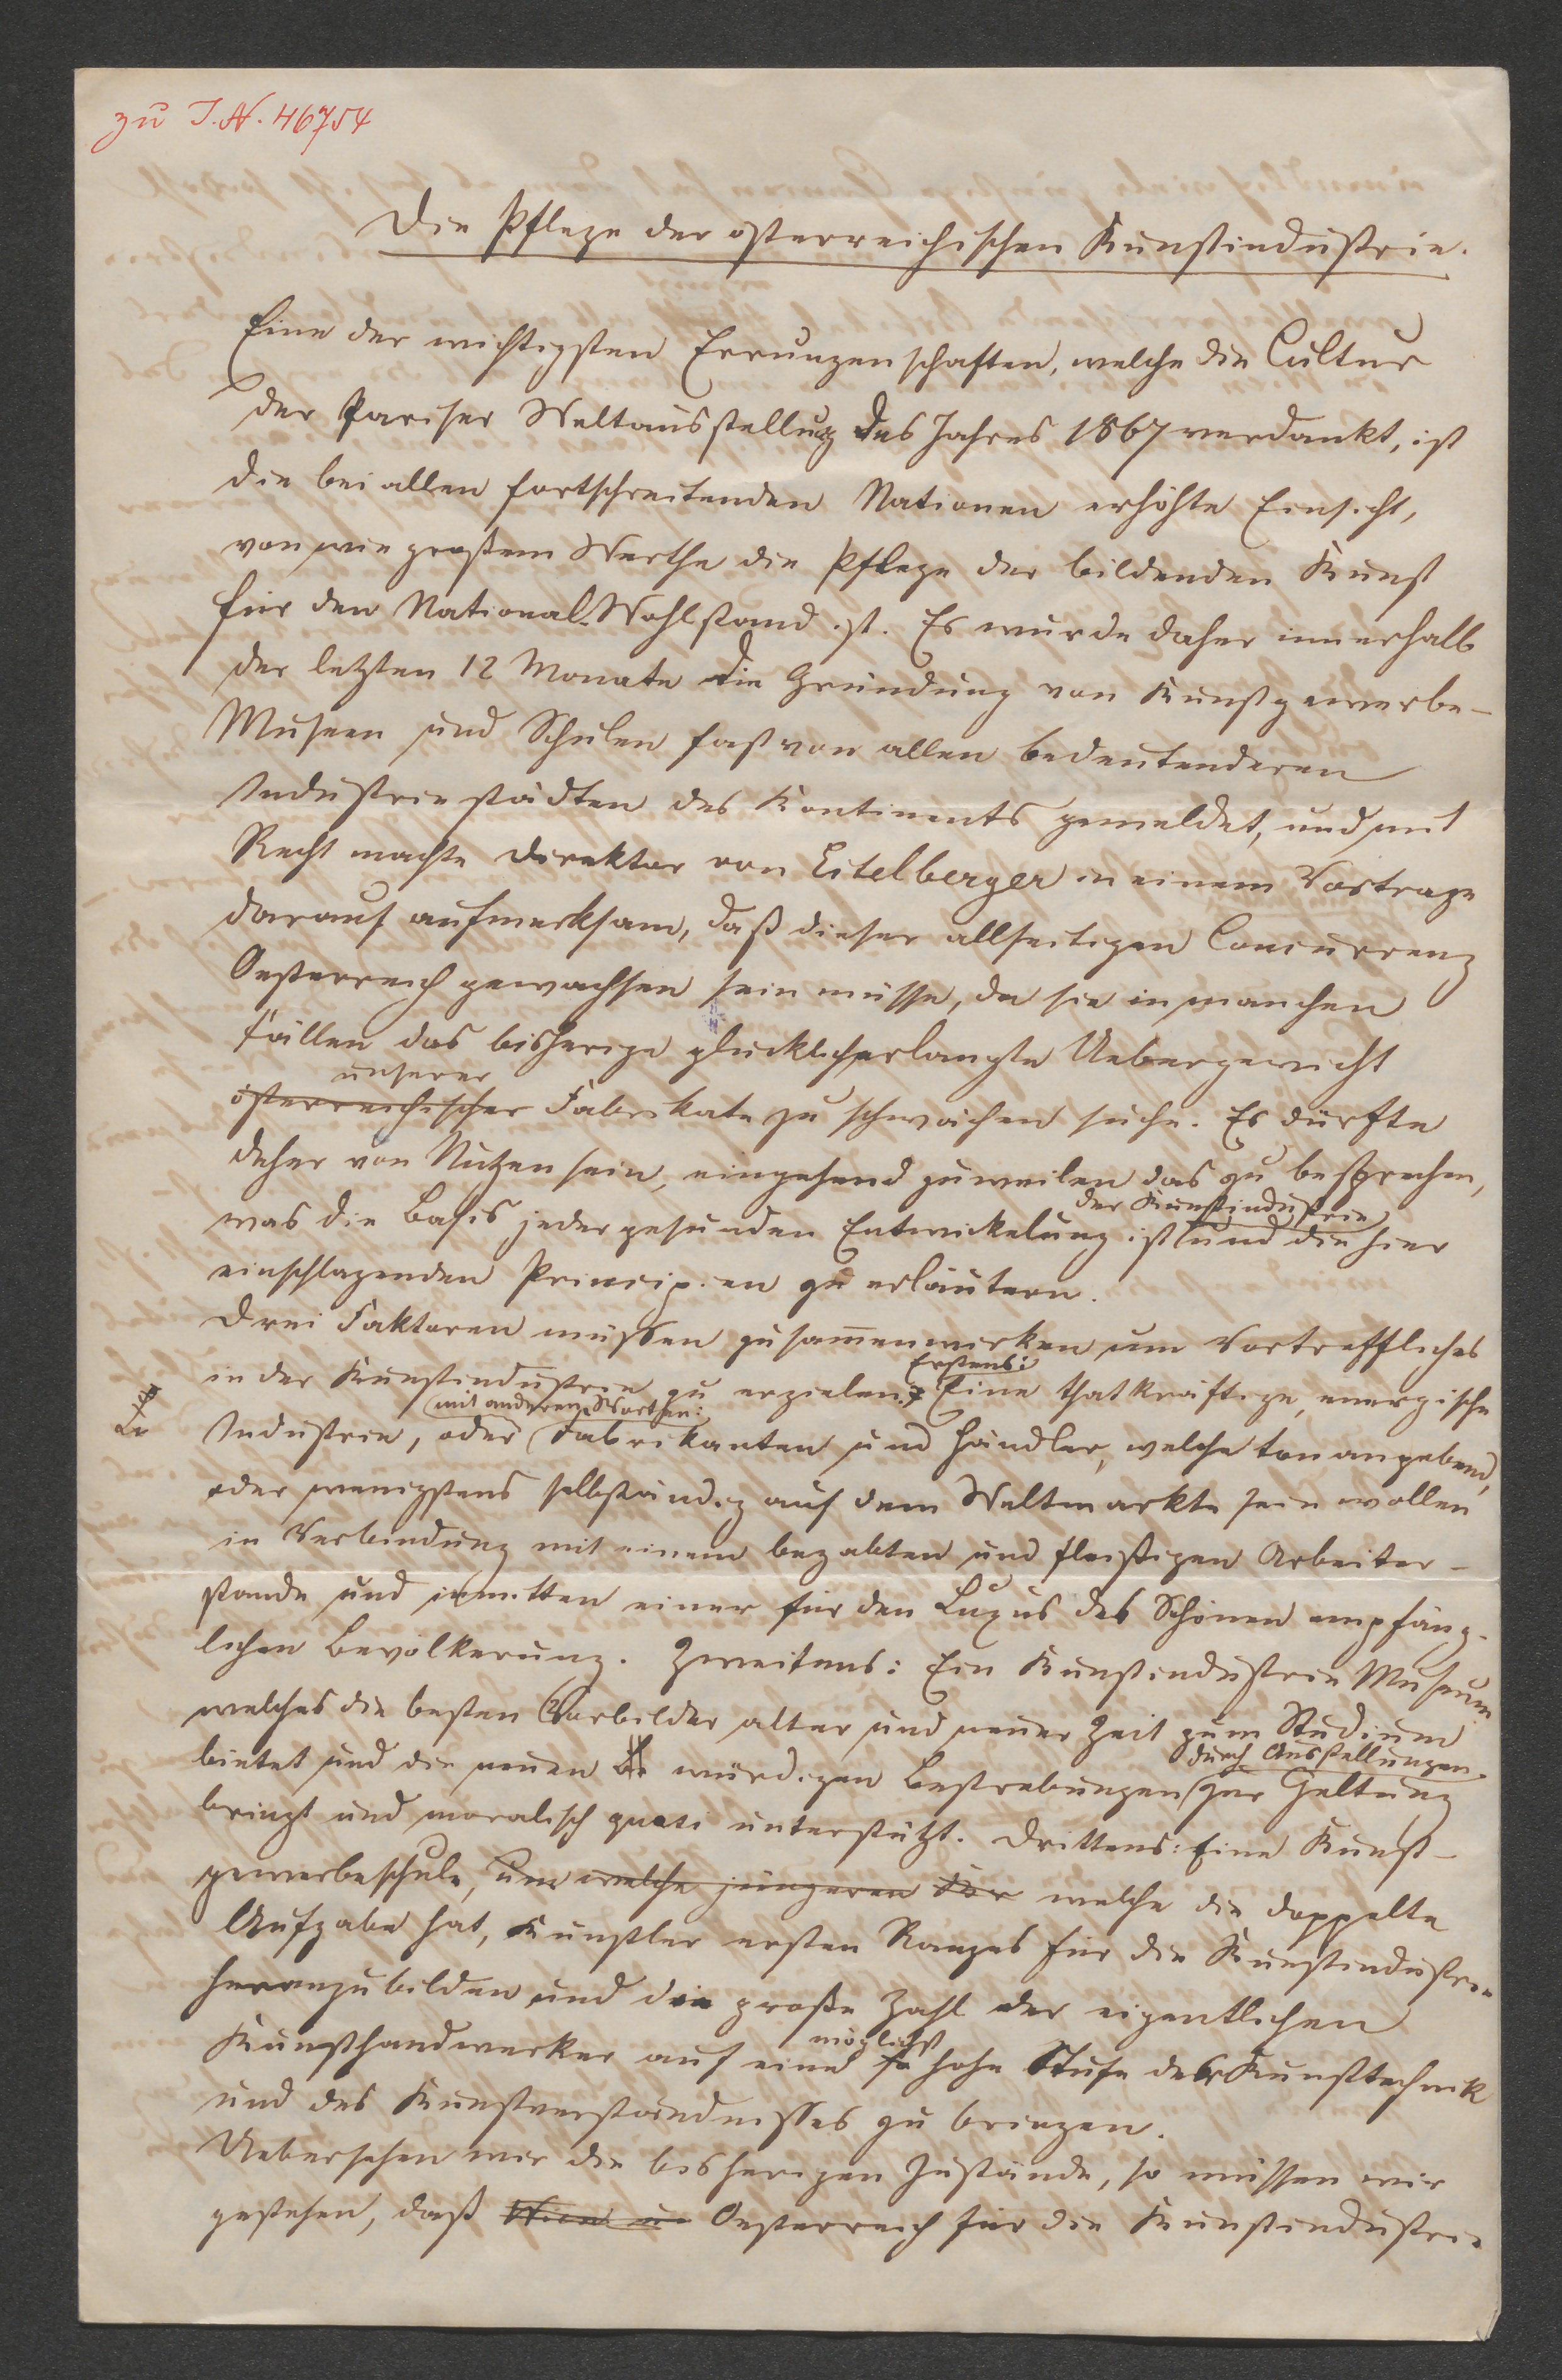 zu I.N. 46754
Die Pflege der österreichischen Kunstindustrie.
Eine der wichtigsten Errungenschaften, welche die Cultur
der Pariser Weltausstellung des Jahres 1867 verdankt, ist
die bei allen fortschreitenden Nationen erhöhte Einsicht,
von wie großem Werthe die Pflege der bildenden Kunst
für den National-Wohlstand ist. Es wurde daher innerhalb
der letzten 12 Monate die Gründung von Kunstgewerbe-
Museen und Schulen fast von allen bedeutenderen
Industriestädten des Kontinents gemeldet, und mit
Recht machte Direktor von Eitelberger in einem Vortrage
darauf aufmerksam, daß dieser allseitigen Concurrenz
Oesterreich gewachsen sein müsse, da sie in manchen
Fällen das bisherige glücklich erlangte Uebergewicht
unserer
österreichischer Fabrikate zu schwächen suche. Es dürfte
daher von Nutzen sein, eingehend zuweilen das zu besprechen,
der Kunstindustrie
was die Basis jeder gesunden Entwickelung ist und die hier
einschlagenden Principien zu erläutern.
Drei Faktoren müssen zusammenwirken um Vortreffliches
Erstens:
in der Kunstindustrie zu erzielen: Eine thatkräftige, energische
mit anderen Worten:
Industrie, oder Fabrikanten und Händler, welche tonangebend,
oder wenigstens selbständig auf dem Weltmarkte sein wollen
in Verbindung mit einem begabten und fleißigen Arbeiter-
stande und inmitten einer für den Luxus des Schönen empfäng-
lichen Bevölkerung. Zweitens: Ein Kunstindustrie Museum
welches die besten Vorbilder alter und neuer Zeit zum Studium
durch Ausstellungen
bietet und die neuen würdigen Bestrebungen zur Geltung
bringt und moralisch quasi unterstützt. Drittens: Eine Kunst-
gewerbeschule, um welche jüngeren welche die doppelte
Aufgabe hat, Künstler ersten Ranges für die Kunstindustrie
heranzubilden und die große Zahl der eigentlichen
möglichst
Kunsthandwerker auf eine so hohe Stufe der Kunsttechnik
und des Kunstverständnisses zu bringen.
Uebersehen wir die bisherigen Zustände, so müssen wir
gestehen, daß Wien u. Oesterreich für die Kunstindustrie